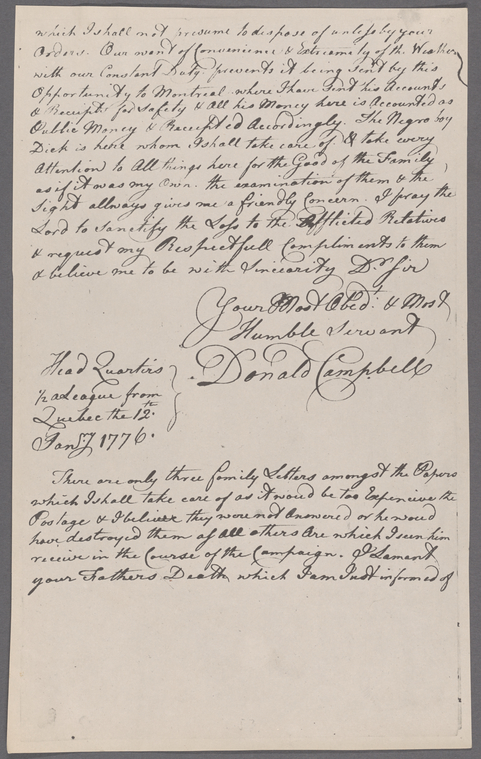 which I shall not presume to dispose of unless by your
Orders. Our want of Convenience & Extremety of the Weather
with our Constant Duty, prevents it being Sent by this
Opportunity to Montreal where I have Sent his Accounts
& Receipts for Safety & all his Money here is Accounted as
Public Money & Receipted Accordingly. The Negro boy
Dick is here whom I shall take care of & take every
Attention to All things here for the Good of the Family
as if it was my Own. the examination of them & the
Sight allways gives me a friendly Concern. I pray the
Lord to Sanctify the Loss to the Afflicted Relatives
& request my Respectfull Compliments to them
& believe me to be with Sincearity Dr. Sir
Your Most Obedt. & Most
Humble Servant
Donald Campbell
Head Quartirs
1/2 a League from
Quebec the 12th.
Jany. 1776.
There are only three family Letters amongst the Papers
which I shall take care of as it woud be too Expencive the
Postage & I believe they were not Answered or he woud
have destroyed them as all others are which I seen him
receive in the Course of the Campaign. I Lament
your Fathers Death which I am Just informed of